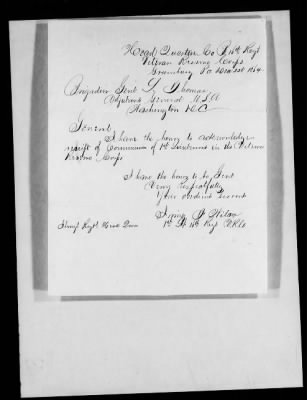 Head Quarters Co 16th Regt
Veteran Reserve Corps
Pa 1864
Brigadier Genl L. Thomas
Adjutant General U.S.A
Washington D.C
General
I have the honor to acknowledge
receipt of Commission of 1st Lieutenant in the Veteran
Reserve Corps
I have the honor to be Genl
Very respectfully
Your obedient servant
1st Lt 16th Regt V.R.C.